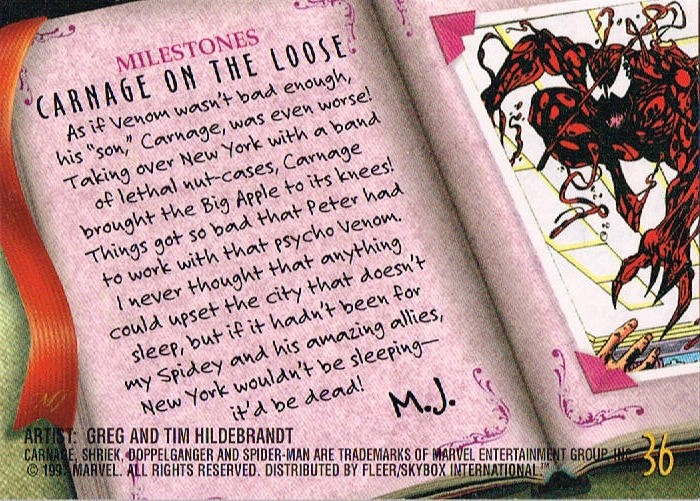 MILESTONES
CARNAGE ON THE LOOSE
As if Venom wasn't bad enough,
his "son," Carnage, was even worse!
Taking over New York with a band
of lethal nut-cases, Carnage
brought the Big Apple to its knees!
Things got so bad that Peter had
to work with that psycho Venom.
I never thought that anything
could upset the city that doesn't
sleep, but if it hadn't been for
my Spidey and his amazing allies,
New York wouldn't be sleeping—
it'd be dead!
M.J.
ARTIST: GREG AND TIM HILDEBRANDT
CARNAGE, SHRIEK, DOPPELGANGER AND SPIDER-MAN ARE TRADEMARKS OF MARVEL ENTERTAINMENT GROUP, INC.
© MARVEL. ALL RIGHTS RESERVED. DISTRIBUTED BY FLEER/SKYBOX INTERNATIONAL™
36